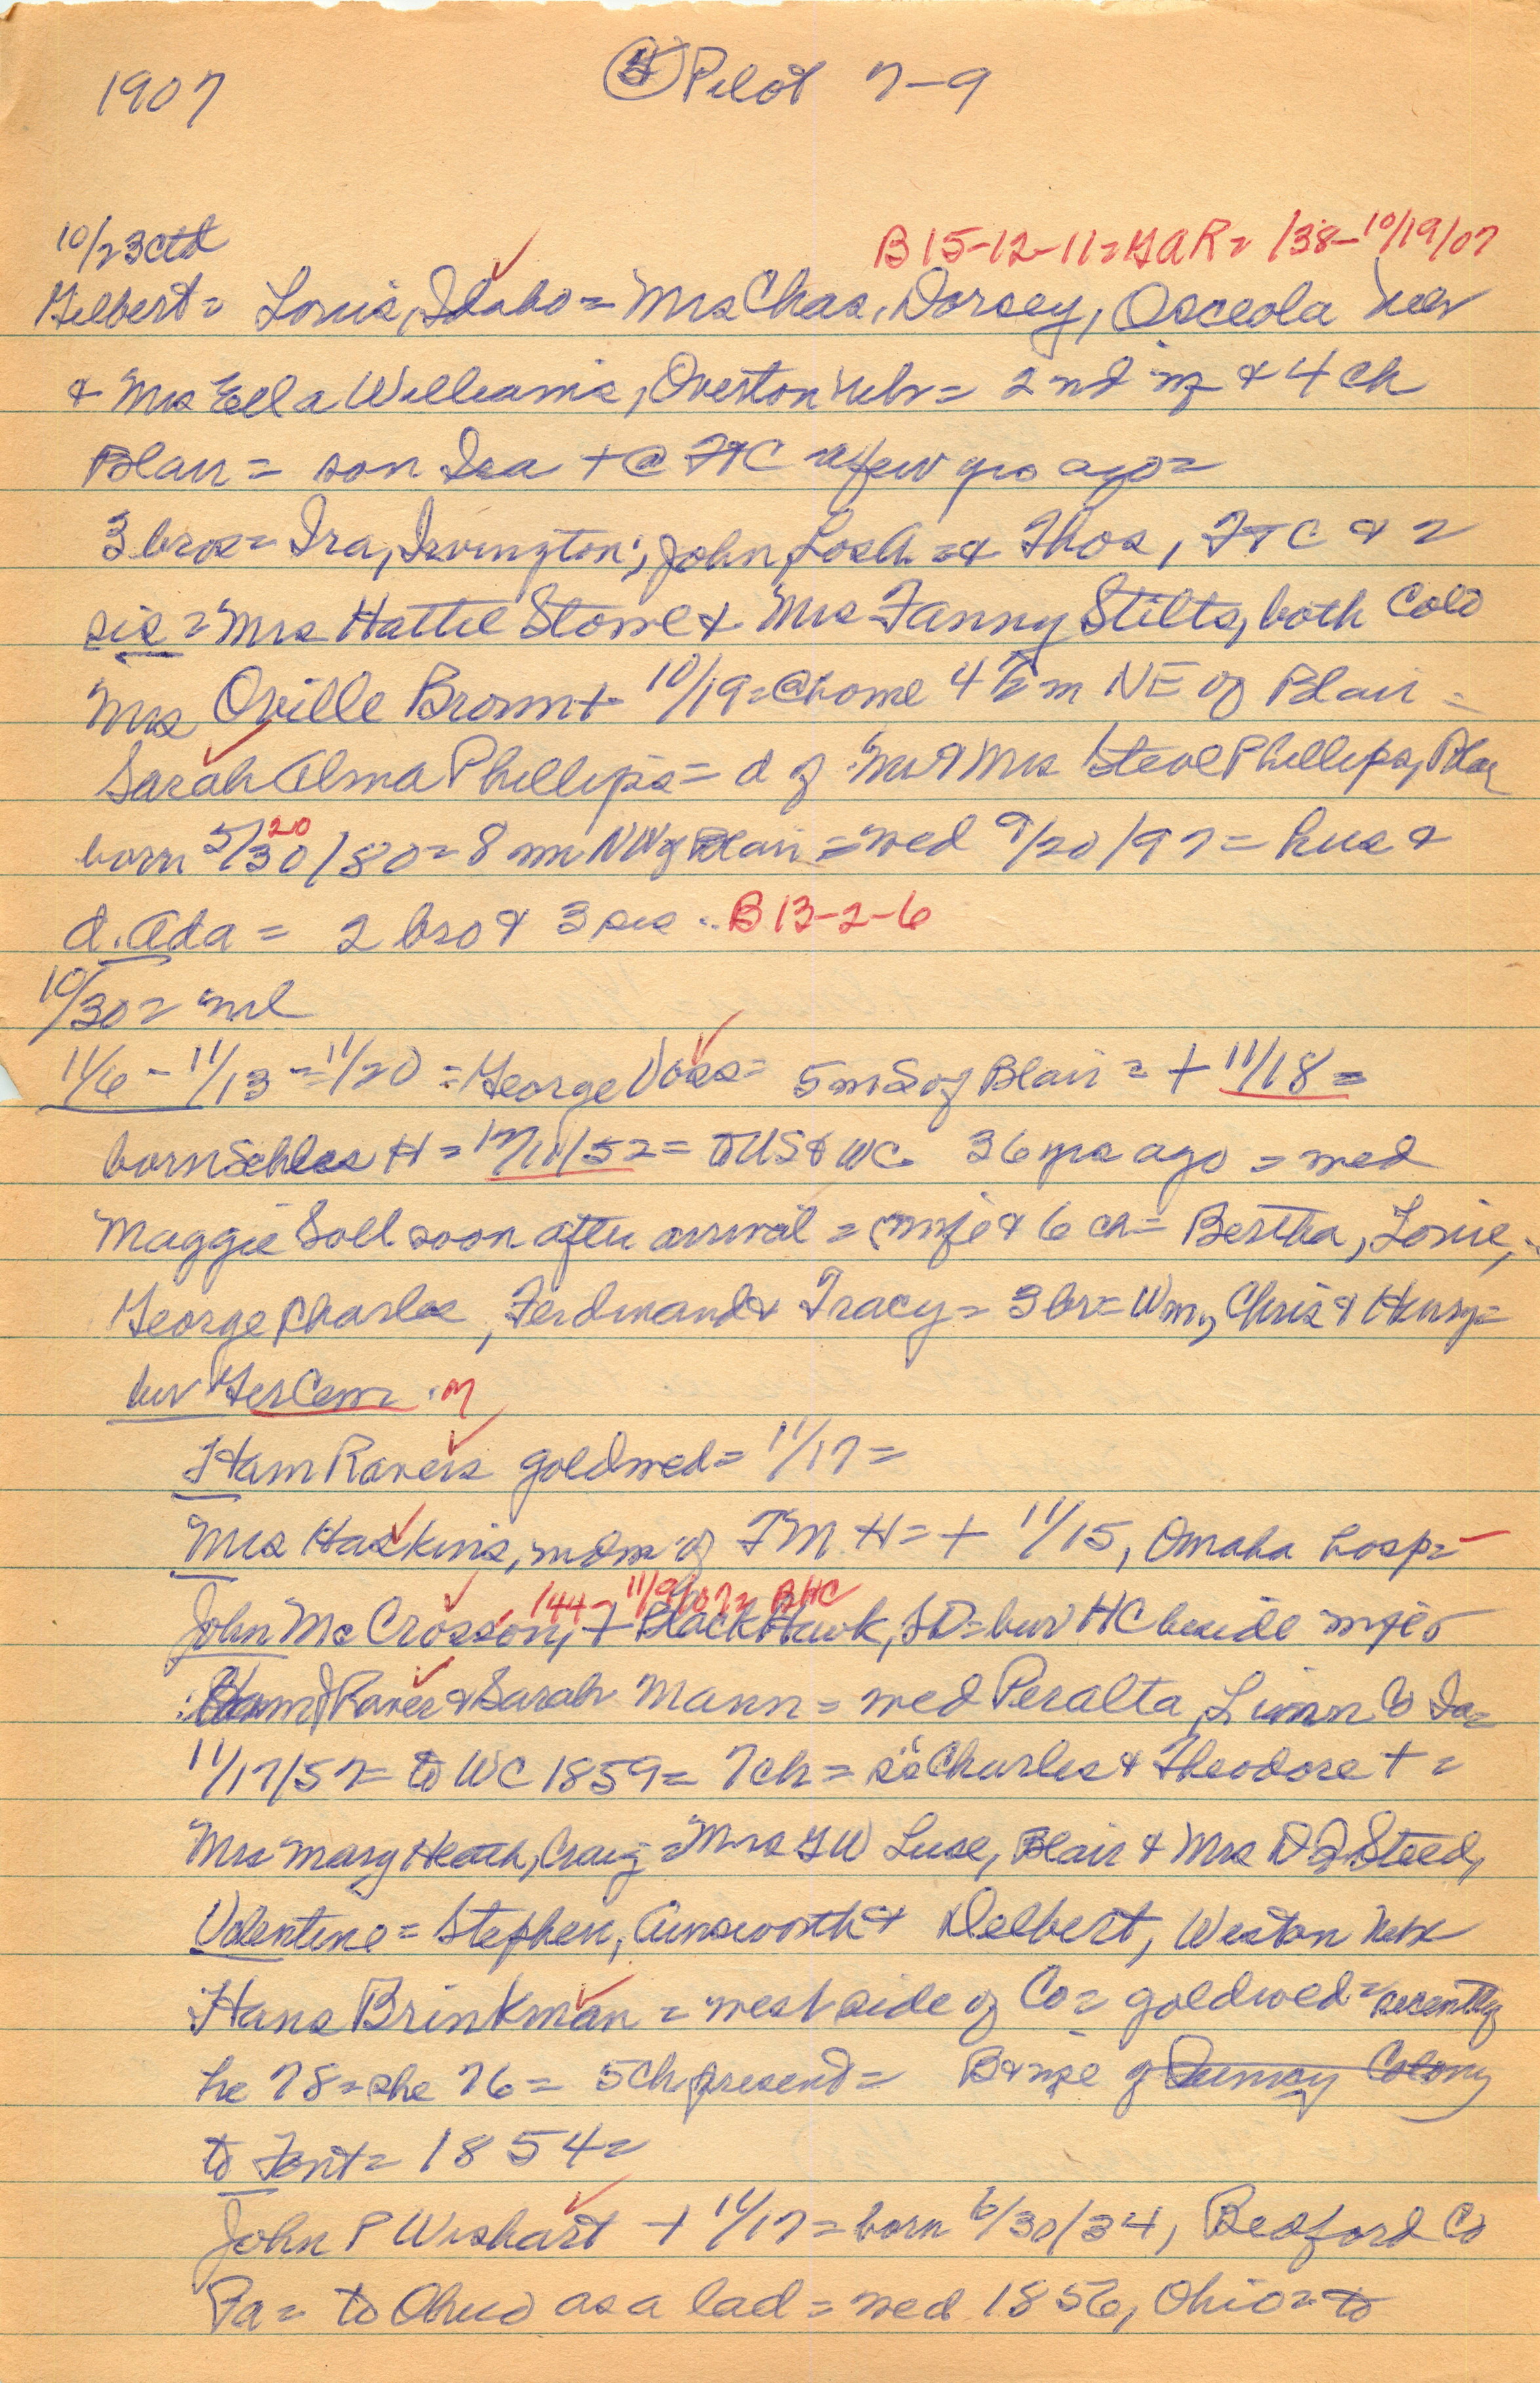 1907 ④ Pilot 7-9
10/23 ctd B 15-12-11 = GAR = 138 - 10/19/07
Gilbert = Louis, Idaho = Mrs Chas. Dorsey, Osceola Nebr
& Mrs Ella Williams, Overton Nebr = 2nd & 4 ch
Blair = son Ira + @ FTC a few yrs ago =
3 bros = Ira, Irvington; John, = & Thos, FTC & 2
sis = Mrs Hattie Stowe & Mrs Fanny Stilts, both Colo
Mrs Orville Brown + 10/19 = @ home 4 1/2 m NE of Blair =
Sarah Alma Phillips = d of Mr & Mrs Steve Phillips, Blair
born 5/30/80 20 = 8 mi NW of Blair = wed 9/20/97 = hus &
d. Ada = 2 bro & 3 sis .. B 13-2-6
10/30 = nil
11/6 - 11/13 - 11/20 = George Voss = 5 m S of Blair = + 11/18 =
born Schles H = /52 = to US & WC 36 yrs ago = wed
Maggie Soll soon after arrival = wife & 6 ch = Bertha, Louie,
George Charles, Ferdinand & Tracy = 3 br = Wm, Chris & Henry =
bur Ger Cem.
Ham Ravers gold wed = 11/17 =
Mrs Haskins, of FM H = + 11/15, Omaha hosp =
144 - 11/9/07 = BHC
John McCrosson, + Black Hawk, SD = bur HC beside wife
Raver & Sarah Mann = wed Peralta, Linn Co Ia =
11/17/57 = to WC 1859 = 7 ch = s's Charles & Theodore + =
Mrs Mary Heath, Craig = Mrs GW Luse, Blair & Mrs D J Steed,
Valentine = Stephen, Ainsworth & Delbert, Weston Nebr
Hans Brinkman = west side of Co = gold wed = recently
he 78 = she 76 = 5 ch present = B & wife of Quincy Colony
to Font = 1854 =
John P Wishart + 11/17 = born 6/30/34, Bedford Co
Pa = to Ohio as a lad = wed 1856, Ohio = to